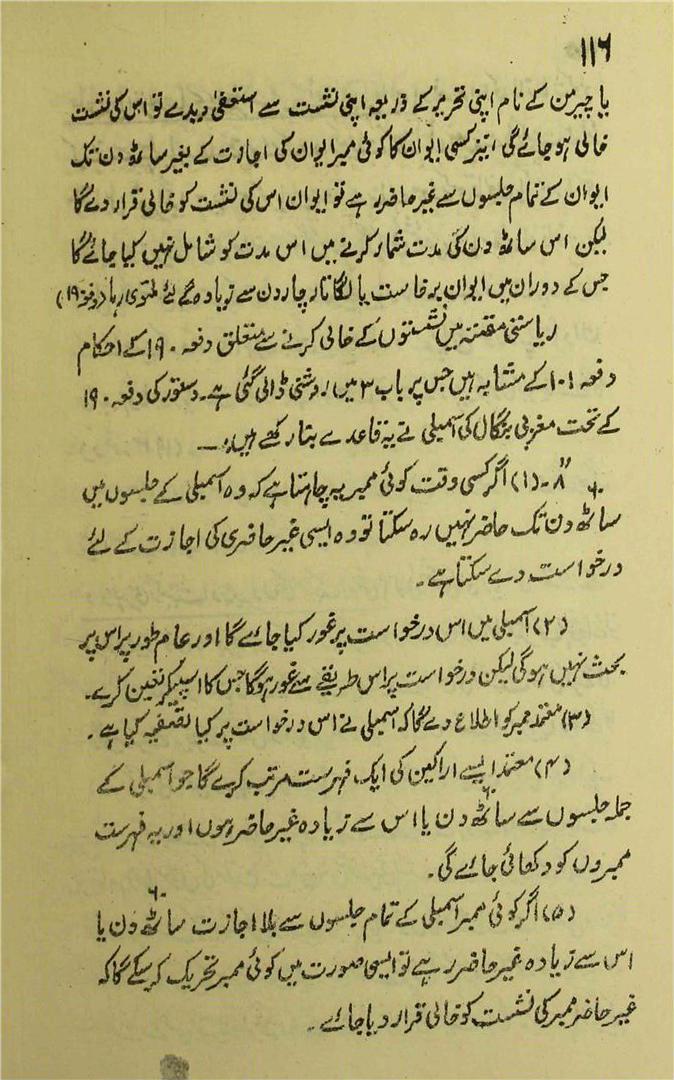 ۱۱۶
یا چیرمن کے نام اپنی تحریر کے ذریعہ اپنی نشست سے استعفیٰ دیدے تو اس کی نشست
خالی ہو جائے گی، نیز کسی ایوان کا کوئی ممبر ایوان کی اجازت کے بغیر ساٹھ دن تک
ایوان کے تمام جلسوں سے غیر حاضر رہے تو ایوان اس کی نشست کو خالی قرار دے گا
لیکن اس ساٹھ دن کی مدت شمار کرنے میں اس مدت کو شامل نہیں کیا جائے گا
جس کے دوران میں ایوان برخاست یا لگاتار چار دن سے زیادہ کے لئے ملتوی رہا (دفعہ ۱۹۰)
ریاستی مقننہ میں نشستوں کے خالی کرنے سے متعلق دفعہ ۱۹۰ کے احکام
دفعہ ۱۰۱ کے مشابہ ہیں جس پر باب ۳ میں روشنی ڈالی گئی ہے۔ دستور کی دفعہ ۱۹۰
کے تحت مغربی بنگال کی اسمبلی نے یہ قاعدے بنا رکھے ہیں:۔
"۸۔ (۱) اگر کسی وقت کوئی ممبر یہ چاہتا ہے کہ وہ اسمبلی کے جلسوں میں ۶۰
ساٹھ دن تک حاضر نہیں رہ سکتا تو وہ ایسی غیر حاضری کی اجازت کے لئے
درخواست دے سکتا ہے۔
(۲) اسمبلی میں اس درخواست پر غور کیا جائے گا اور عام طور پر اس پر
بحث نہیں ہوگی لیکن درخواست پر اس طریقے سے غور ہوگا جس کا اسپیکر تعین کرے۔
(۳) معتمد ممبر کو اطلاع دے گا کہ اسمبلی نے اس درخواست پر کیا تصفیہ کیا ہے۔
(۴) معتمد ایسے اراکین کی ایک فہرست مرتب کرے گا جو اسمبلی کے
جملہ جلسوں سے ساٹھ ۶۰ دن یا اس سے زیادہ غیر حاضر ہوں اور یہ فہرست
ممبروں کو دکھائی جائے گی۔
(۵) اگر کوئی ممبر اسمبلی کے تمام جلسوں سے بلا اجازت ساٹھ ۶۰ دن یا
اس سے زیادہ غیر حاضر رہے تو ایسی صورت میں کوئی ممبر تحریک کر سکے گا کہ
غیر حاضر ممبر کی نشست کو خالی قرار دیا جائے۔